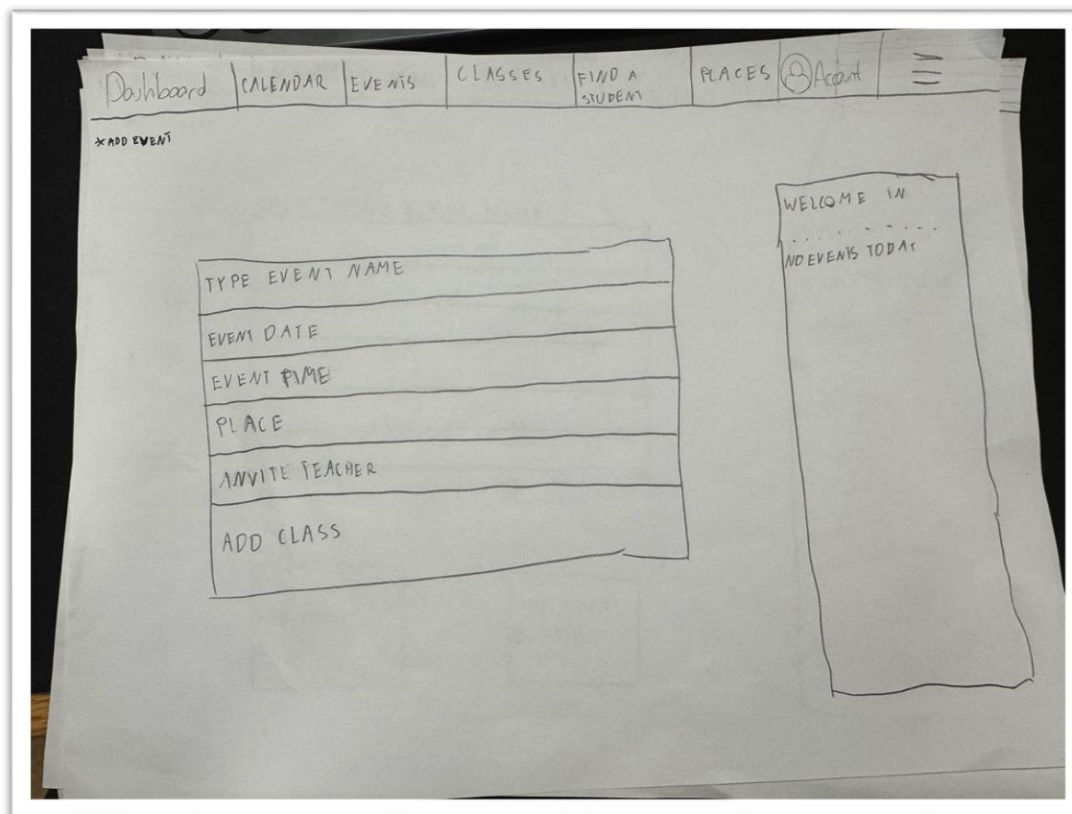 Dashboard
CALENDAR
EVENTS
CLASSES
FIND A
STUDENT
PLACES
Account
*ADD EVENT
TYPE EVENT NAME
EVENT DATE
EVENT TIME
PLACE
INVITE TEACHER
ADD CLASS
WELCOME IN
. . . . . . . . .
NO EVENTS TODAY